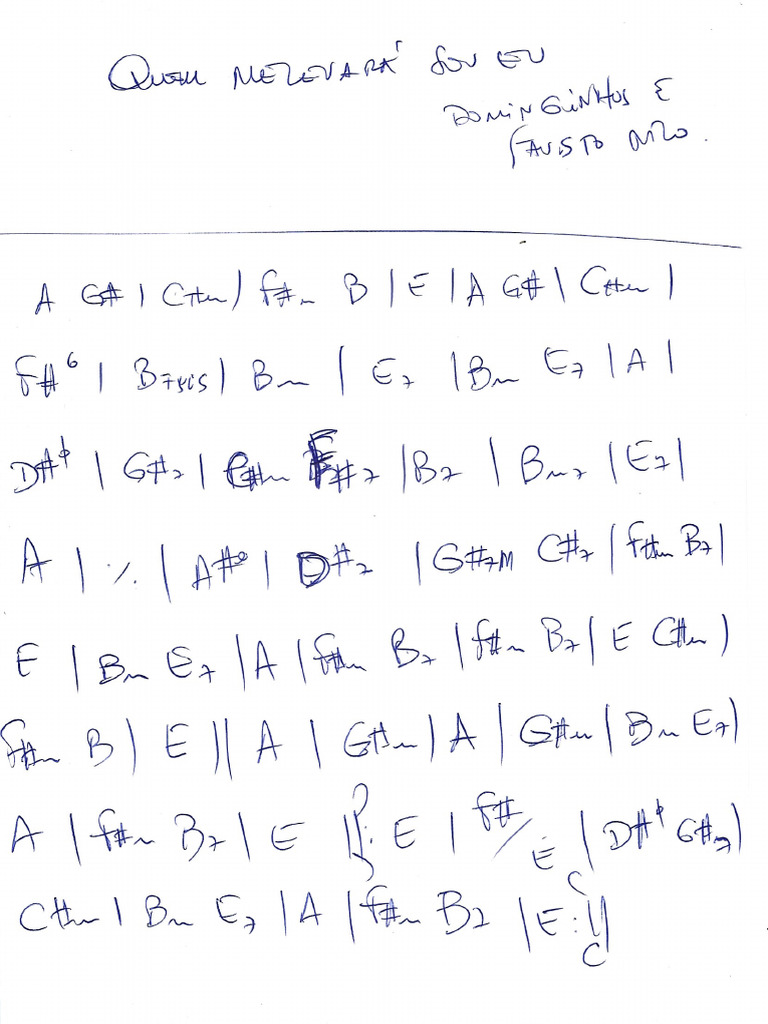 Quem me levará sou eu
Dominguinhos e
Fausto Nilo.
A G# | C#m | F#m B | E | A G# | C#m |
F#6 | B7sus | Bm | E7 | Bm E7 | A |
D#ø | G#7 | C#m F#7 | B7 | Bm7 | E7 |
A | ٪ | A#º | D#7 | G#7M C#7 | F#m B7 |
E | Bm E7 | A | F#m B7 | F#m B7 | E C#m |
F#m B | E || A | G#m | A | G#m | Bm E7 |
A | F#m B7 | E ||: E | F#/E | D#ø G#7 |
C#m | Bm E7 | A | F#m B7 | E :||